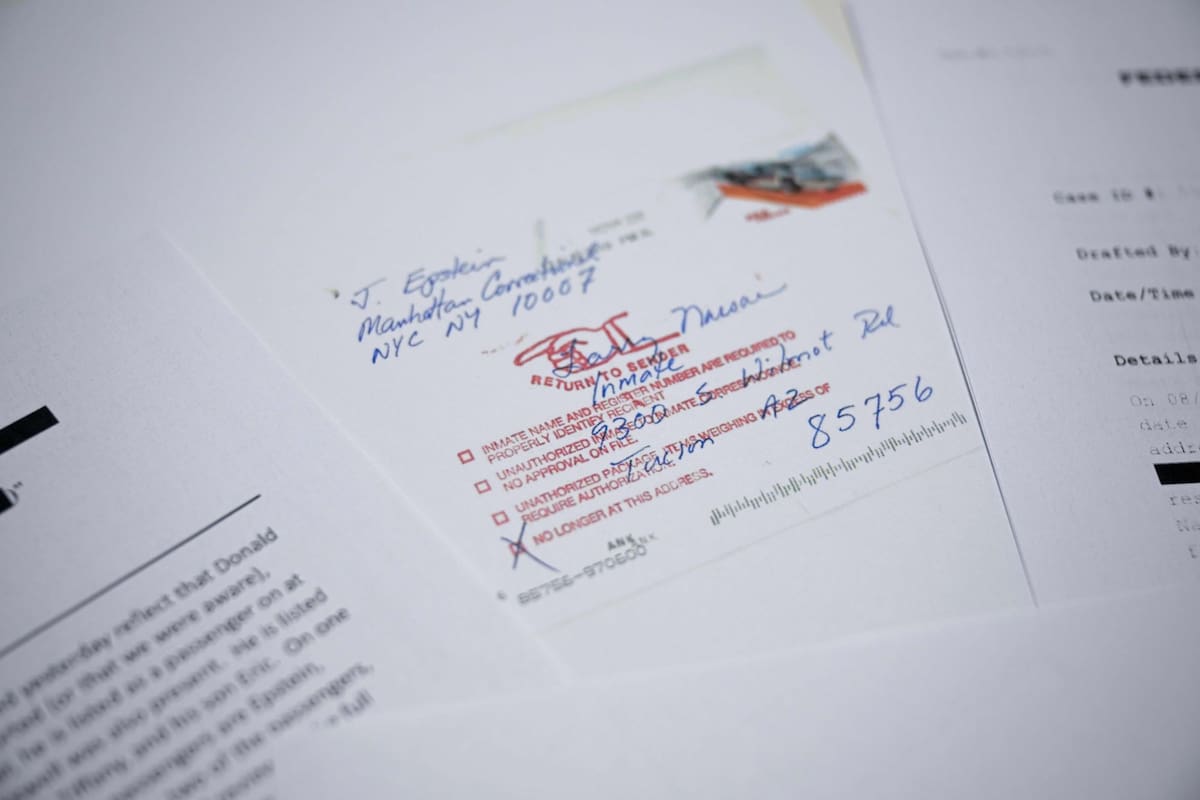 J. Epstein
Manhattan Correctional
NYC NY 10007
Larry Nassar
Inmate
9300 S Wilmot Rd
Tucson AZ
85756
RETURN TO SENDER
INMATE NAME AND REGISTER NUMBER ARE REQUIRED TO
PROPERLY IDENTIFY RECIPIENT
UNAUTHORIZED INMATE TO INMATE CORRESPONDENCE.
NO APPROVAL ON FILE.
UNATHORIZED PACKAGE. ITEMS WEIGHING IN EXCESS OF
REQUIRE AUTHORIZATION.
X NO LONGER AT THIS ADDRESS.
ANK
85756-970600
yesterday reflect that Donald
(or that we were aware),
he is listed as a passenger on at
was also present. He is listed
Tiffany, and his son Eric. On one
passengers are Epstein,
of the passengers,
full
FEDE
Case ID #:
Drafted By:
Date/Time
Details
On 08/
date
addr
res
Na
f